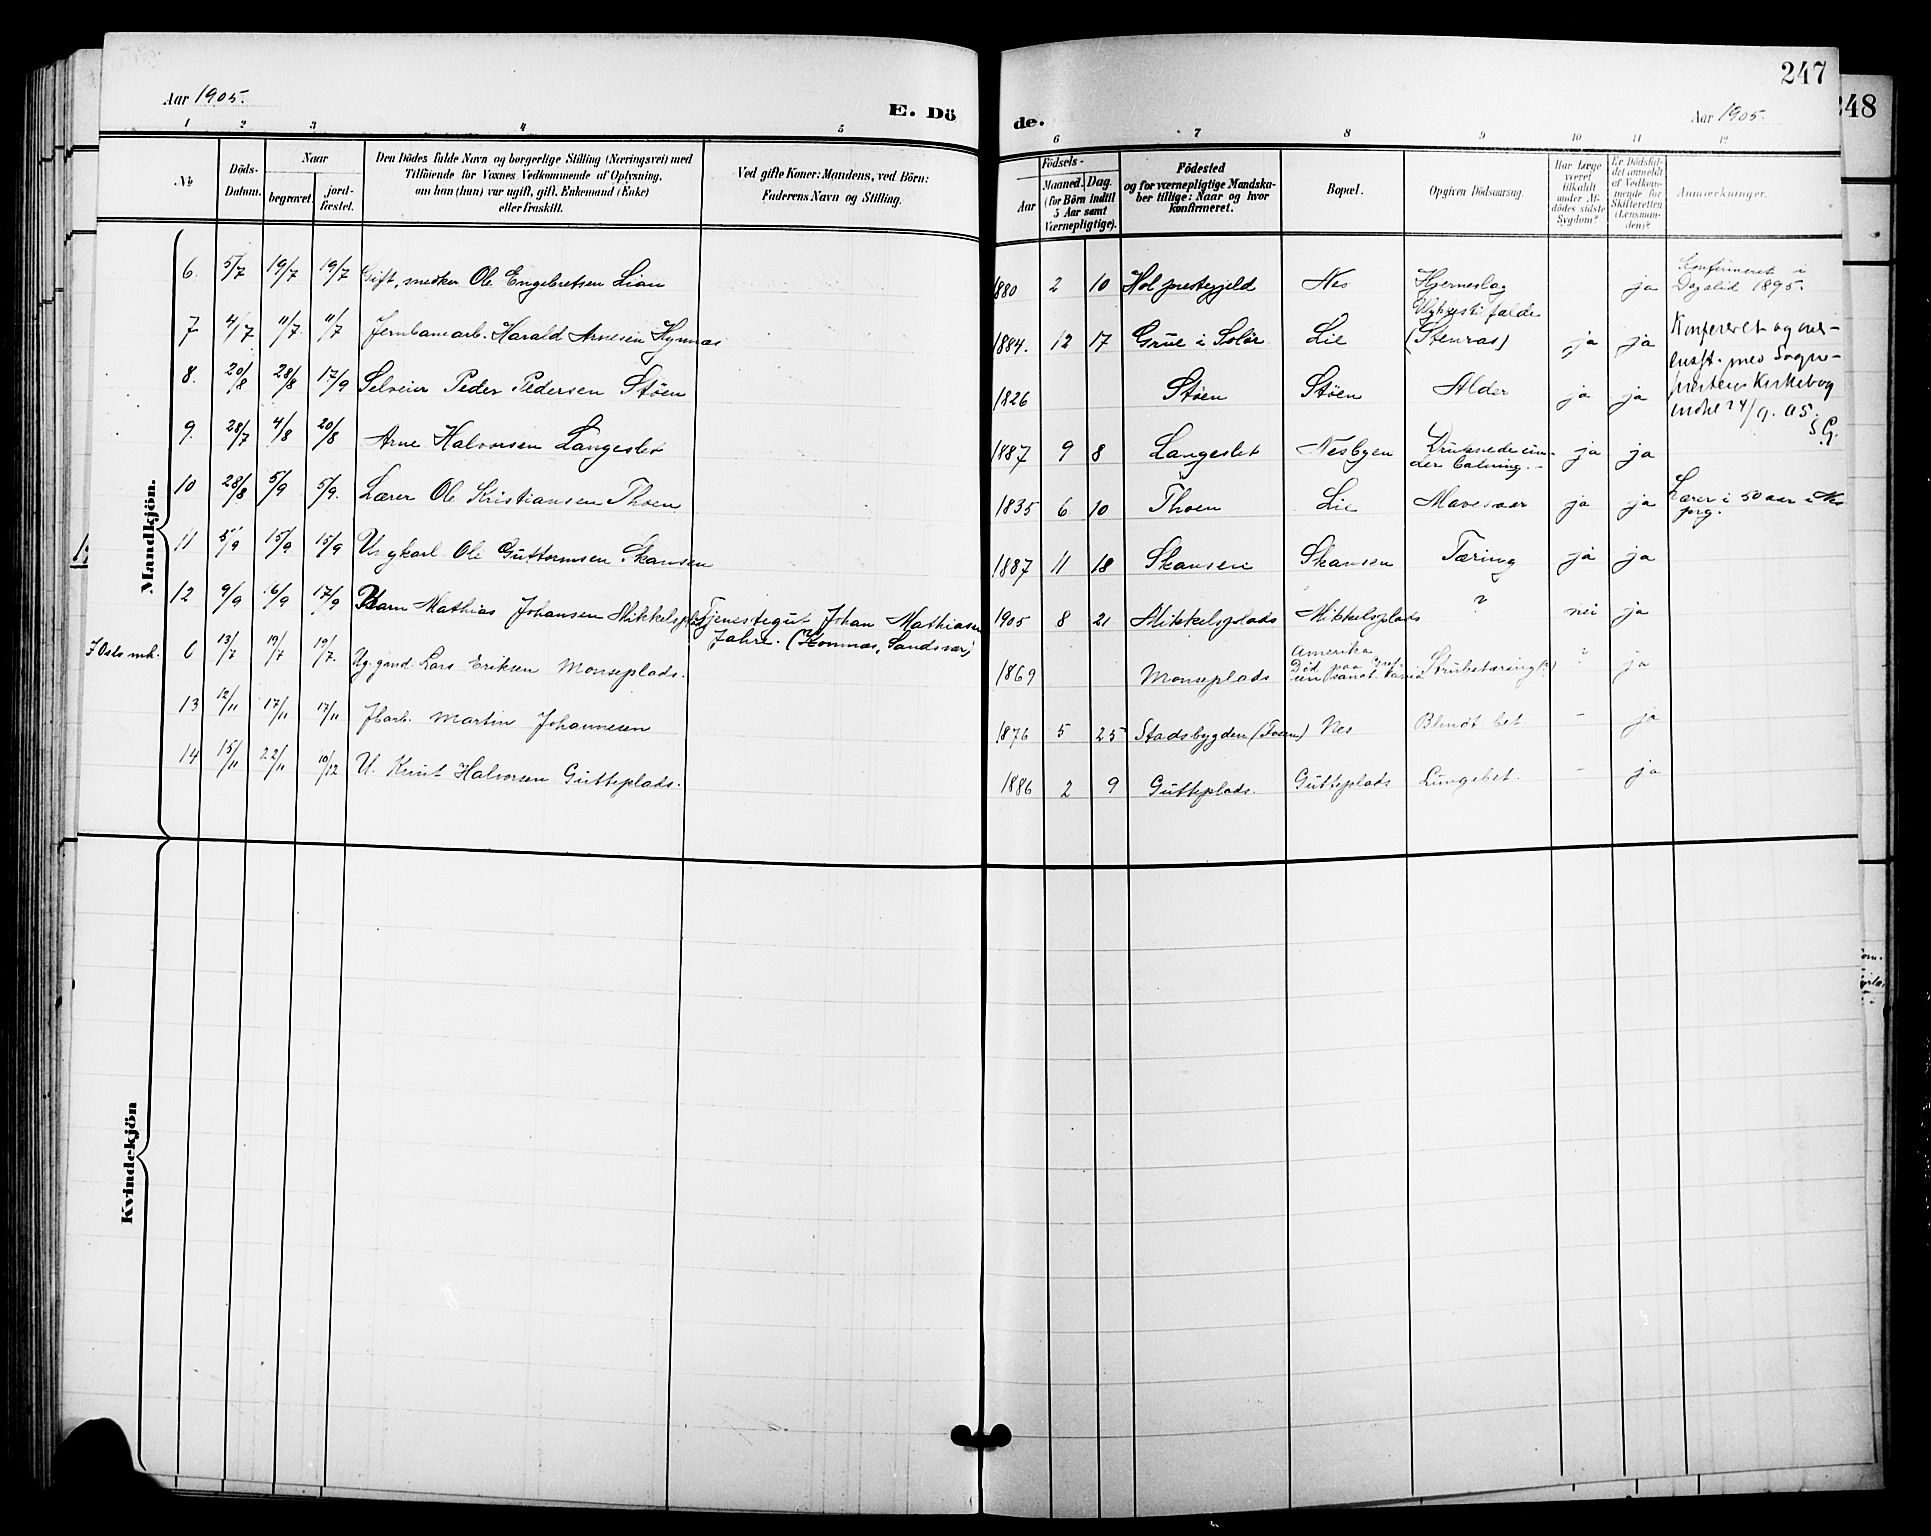 Aar 1905.
E. Dö
de.
Aar 1905.
247
248
1 2 3 4 5 6 7 8 9 10 11 12
No
Döds-Datum.
Naar
begravet.
jord-fæstet.
Den Dödes fulde Navn og borgerlige Stilling (Næringsvei) med
Tilföiende for Voxnes Vedkommende af Oplysning,
om han (hun) var ugift, gift, Enkemand (Enke)
eller fraskilt.
Ved gifte Koner: Mandens, ved Börn:
Faderens Navn og Stilling.
Födsels-
Aar
Maaned. Dag.
(for Börn indtil
5 Aar samt
Værnepligtige).
Födested
og for værnepligtige Mandska-
ber tillige: Naar og hvor
konfirmeret.
Bopæl.
Opgiven Dödsaarsag.
Har Læge
været
tilkaldt
under Af-
dödes sidste
Sygdom?
Er Dödsfal-
det anmeldt
af Vedkom-
mende for
Skifteretten
(Lensman-
den)?
Anmærkninger.
Mandkjön.
6. 5/7 19/7 19/7 Gift, snedker Ole Engebretsen Lian 1880 2 10 Hol prestegjeld Nes Hjerneslag ja Konfirmeret i
Dagalid 1895.
7 4/7 11/7 11/7 Jernbanearb. Harald Arnesen Hynnas 1884. 12 17 Grue i Solør Lie Ulykkestilfælde
(Stenras) ja ja
8. 20/8 28/8 17/9 Selveier Peder Pedersen Støen 1826 Støen Støen Alder ja ja
Konfereret og over-
ensst. med Sogne-
prestens Kirkebog
indtil 24/9. 05.
S.G.
9. 28/7 4/8 20/8 Arne Halvorsen Langeslet 1887 9 8 Langeslet Nesbyen Druknede un-
der badning. ja ja
10 28/8 5/9 5/9. Lærer Ole Kristiansen Thoen 1835 6 10 Thoen Lie Mavesaar ja ja Lærer i 50 aar i Nes
prg.
11 5/9 15/9 15/9 Ungkarl Ole Guttormsen Skansen 1887 11 18 Skansen Skansen Tæring ja ja
12 9/9 16/9 17/9 Barn Mathias Johansen Mikkelsplads Tjenestegut Johan Mathiasen
Jahre. (Komnæs, Sandsvær) 1905 8 21 Mikkelsplads Mikkelsplads ? nei ja
6 13/7 19/7 19/7. Ug. gmd. Lars Eriksen Monseplads. 1869 Monseplads Amerika
Død paa Strubetæring(?) ? ja
13 12/11 17/11 17/11 Martin Johannesen 1876 5 25 Stadsbygden (Fosen) Nes ja
14 15/11 22/11 10/12 U. Knut Halvorsen Gutteplads. 1886 2 9 Gutteplads. Gutteplads Lungebet. - ja
Kvindekjön